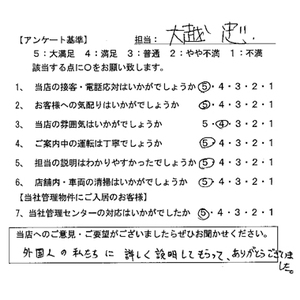 【アンケート基準】 担当: 大越 忠
5:大満足 4:満足 3:普通 2:やや不満 1:不満
該当する点に○をお願い致します。
1、 当店の接客・電話応対はいかがでしょうか ⑤・4・3・2・1
2、 お客様への気配りはいかがでしょうか ⑤・4・3・2・1
3、 当店の雰囲気はいかがでしょうか 5・④・3・2・1
4、 ご案内中の運転は丁寧でしょうか ⑤・4・3・2・1
5、 担当の説明はわかりやすかったでしょうか ⑤・4・3・2・1
6、 店舗内・車両の清掃はいかがでしょうか ⑤・4・3・2・1
【当社管理物件にご入居のお客様】
7、 当社管理センターの対応はいかがでしたか ⑤・4・3・2・1
当店へのご意見・ご要望がございましたらぜひお聞かせください。
外国人の私たちに 詳しく説明してもらって、ありがとうございました。